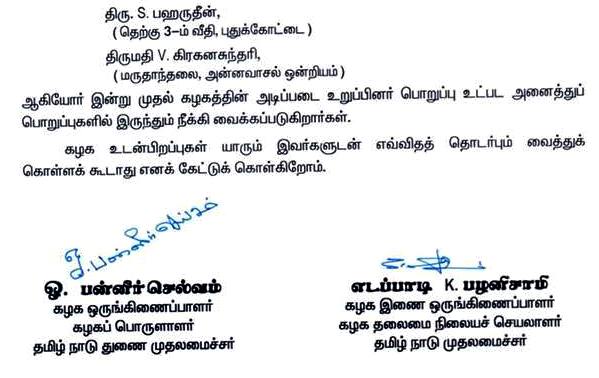 திரு. S. பஹருதீன்,
( தெற்கு 3-ம் வீதி, புதுக்கோட்டை )
திருமதி V. கிரகனசுந்தரி,
( மருதாந்தலை, அன்னவாசல் ஒன்றியம் )
ஆகியோர் இன்று முதல் கழகத்தின் அடிப்படை உறுப்பினர் பொறுப்பு உட்பட அனைத்துப்
பொறுப்புகளில் இருந்தும் நீக்கி வைக்கப்படுகிறார்கள்.
கழக உடன்பிறப்புகள் யாரும் இவர்களுடன் எவ்விதத் தொடர்பும் வைத்துக்
கொள்ளக் கூடாது எனக் கேட்டுக் கொள்கிறோம்.
ஓ. பன்னீர்செல்வம்
ஓ. பன்னீர் செல்வம்
கழக ஒருங்கிணைப்பாளர்
கழகப் பொருளாளர்
தமிழ் நாடு துணை முதலமைச்சர்
எடப்பாடி K. பழனிசாமி
கழக இணை ஒருங்கிணைப்பாளர்
கழக தலைமை நிலையச் செயலாளர்
தமிழ் நாடு முதலமைச்சர்